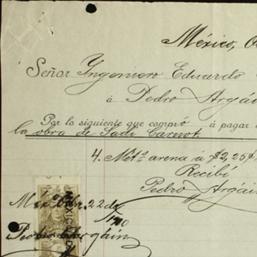 México, O
Señor Ingeniero Eduardo
á Pedro Argái
Por lo siguiente que compró á pagar
la obra de Sadi Carnot
4. Mets arena á $2,25
Recibí
Pedro Argái
22 de